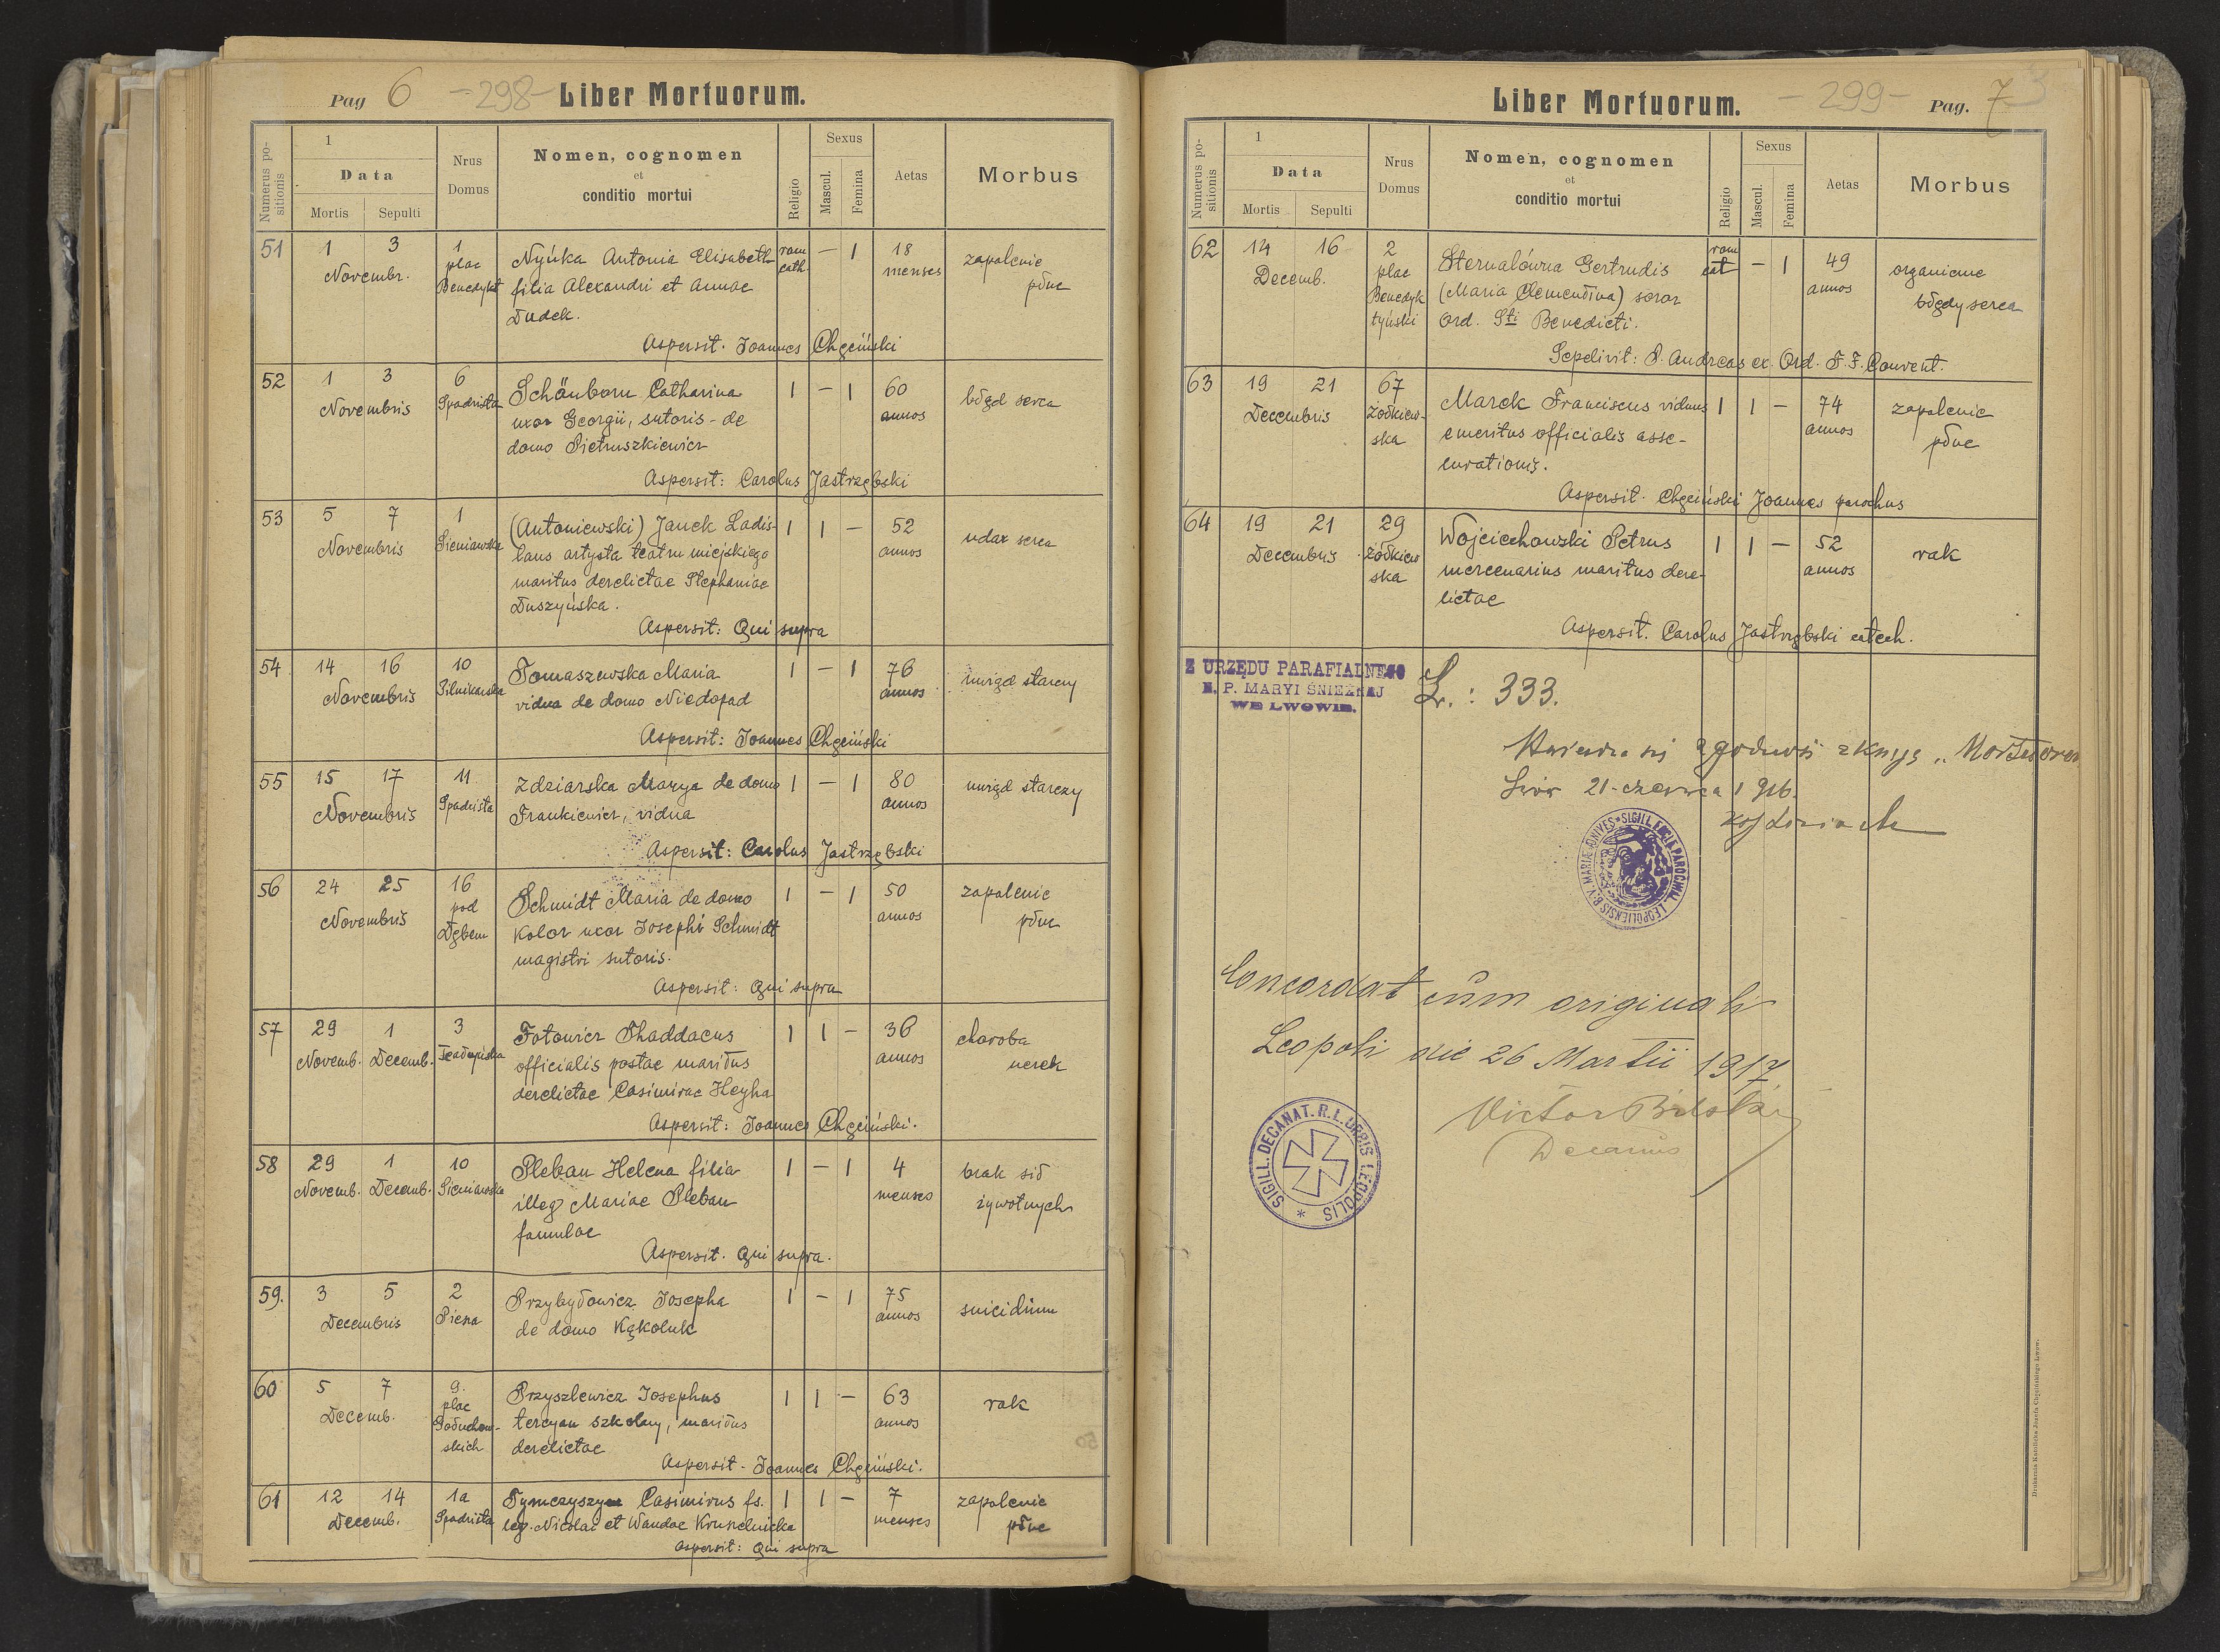 Pag 6 -298- Liber Mortuorum.
Numerus positionis
1
Data
Mortis Sepulti
Nrus Domus
Nomen, cognomen
et
conditio mortui
Religio
Sexus
Mascul. Femina
Aetas
Morbus
51 1 3 1 Nyúka Antonia Elisabeth rom - 1 18 zapalenie
Novembr. plac Benedykt filia Alexandri et Annae cath. menses płuc
Dudek.
Aspersit. Joannes Chęciński
52 1 3 6 Schönborn Catharina 1 - 1 60 błąd serca
Novembris Spadzista uxor Georgii, sutoris - de annos
domo Pietruszkiewicz
Aspersit: Carolus Jastrzębski
53 5 7 1 (Antoniewski) Janek Ladis- 1 1 - 52 udar serca
Novembris Sieniawska laus artysta teatru miejskiego annos
maritus derelictae Stephaniae
Duszyńska.
Aspersit: Qui supra
54 14 16 10 Tomaszewska Maria 1 - 1 76 uwiąd starczy
Novembris Pilnikarska vidua de domo Niedopad annos
Aspersit: Joannes Chęciński
55 15 17 11 Zdziarska Marya de domo 1 - 1 80 uwiąd starczy
Novembris Spadzista Frankiewicz, vidua annos
Aspersit: Carolus Jastrzębski
56 24 25 16 Schmidt Maria de domo 1 - 1 50 zapalenie
Novembris pod Dębem Kolor uxor Josephi Schmidt annos płuc
magistri sutoris.
Aspersit: Qui supra
57 29 1 3 Fotowicz Thaddaeus 1 1 - 36 choroba
Novemb. Decemb. officialis postae maritus annos nerek
derelictae Casimirae Heyha
Aspersit: Joannes Chęciński.
58 29 1 10 Pleban Helena filia 1 - 1 4 brak sił
Novemb. Decemb. Sieniawska illeg Mariae Pleban menses żywotnych
famulae
Aspersit. Qui supra.
59. 3 5 2 Przybyłowicz Josepha 1 - 1 75 suicidium
Decembris Piesza de domo Kąkoluk annos
60 5 7 9. Przyszlewicz Josephus 1 1 - 63 rak
Decemb. plac Gołuchow- tercyan szkolny, maritus annos
skich derelictae
Aspersit - Joannes Chęciński.
61 12 14 1a Tymczyszyn Casimirus fs. 1 1 - 7 zapalenie
Decemb. Spadzista leg. Nicolai et Wandae Kruszelnicka menses płuc
Aspersit: Qui supra
Liber Mortuorum. -299- Pag. 7
Numerus positionis
1
Data
Mortis Sepulti
Nrus Domus
Nomen, cognomen
et
conditio mortui
Religio
Sexus
Mascul. Femina
Aetas
Morbus
62 14 16 2 Sternalówna Gertrudis rom - 1 49 organiczne
Decemb. plac Benedyk (Maria Clementina) soror cat annos błędy serca
tyński Ord. Sti Benedicti.
Sepelivit: P. Andreas ex. Ord. F.F. Convent.
63 19 21 67 Marek Franciscus viduus 1 1 - 74 zapalenie
Decembris Żółkiew- emeritus officialis asse- annos płuc
ska curationis.
Aspersit. Chęciński Joannes parochus
64 19 21 29 Wojciechowski Petrus 1 1 - 52 rak
Decembris Żółkiew mercenarius maritus dere- annos
ska lictae
Aspersit. Carolus Jastrzębski catech.
Z URZĘDU PARAFIALNEGO
N. P. MARYI ŚNIEŻNEJ
WE LWOWIE.
L.: 333.
zgodność z księgą „Mortuorum
Lwów 21-czerwca 1916.
SIGILL. ECCLA PAROCHIAL. LEOPOLIENSIS B.V. MARIAE AD NIVES
Concordat cum originali
Leopoli die 26 Martii 1917
Victor
Decanus
SIGILL. DECANAT. R.L. URBIS LEOPOLIS *
Drukarnia Katolicka Józefa Chęcińskiego Lwów.